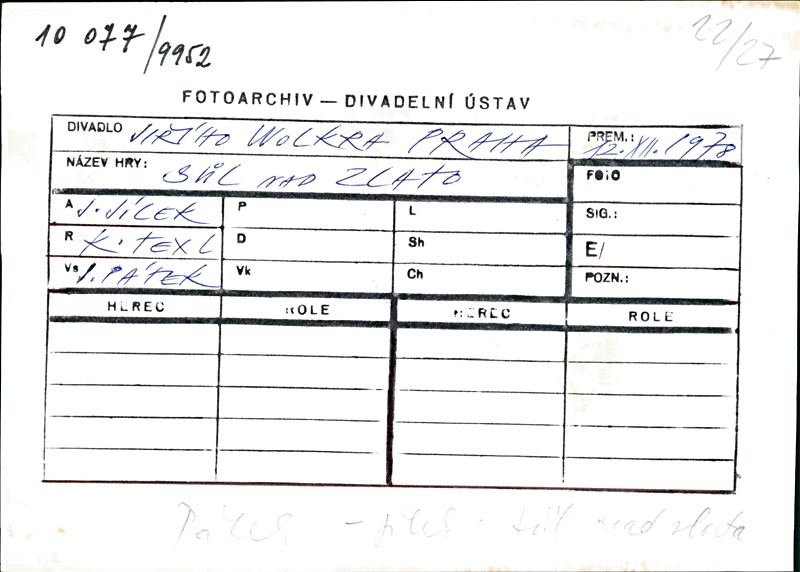 10 077/9952
22/27
FOTOARCHIV — DIVADELNÍ ÚSTAV
DIVADLO JIŘÍHO WOLKRA PRAHA PREM.: 12.XII.1978
NÁZEV HRY: SŮL NAD ZLATO FOTO
A J. JÍLEK P L SIG.:
R K. TEXL D Sh E/
Vs J. PÁTEK Vk Ch POZN.:
HEREC ROLE HEREC ROLE
Pátek - Jílek sůl nad zlato